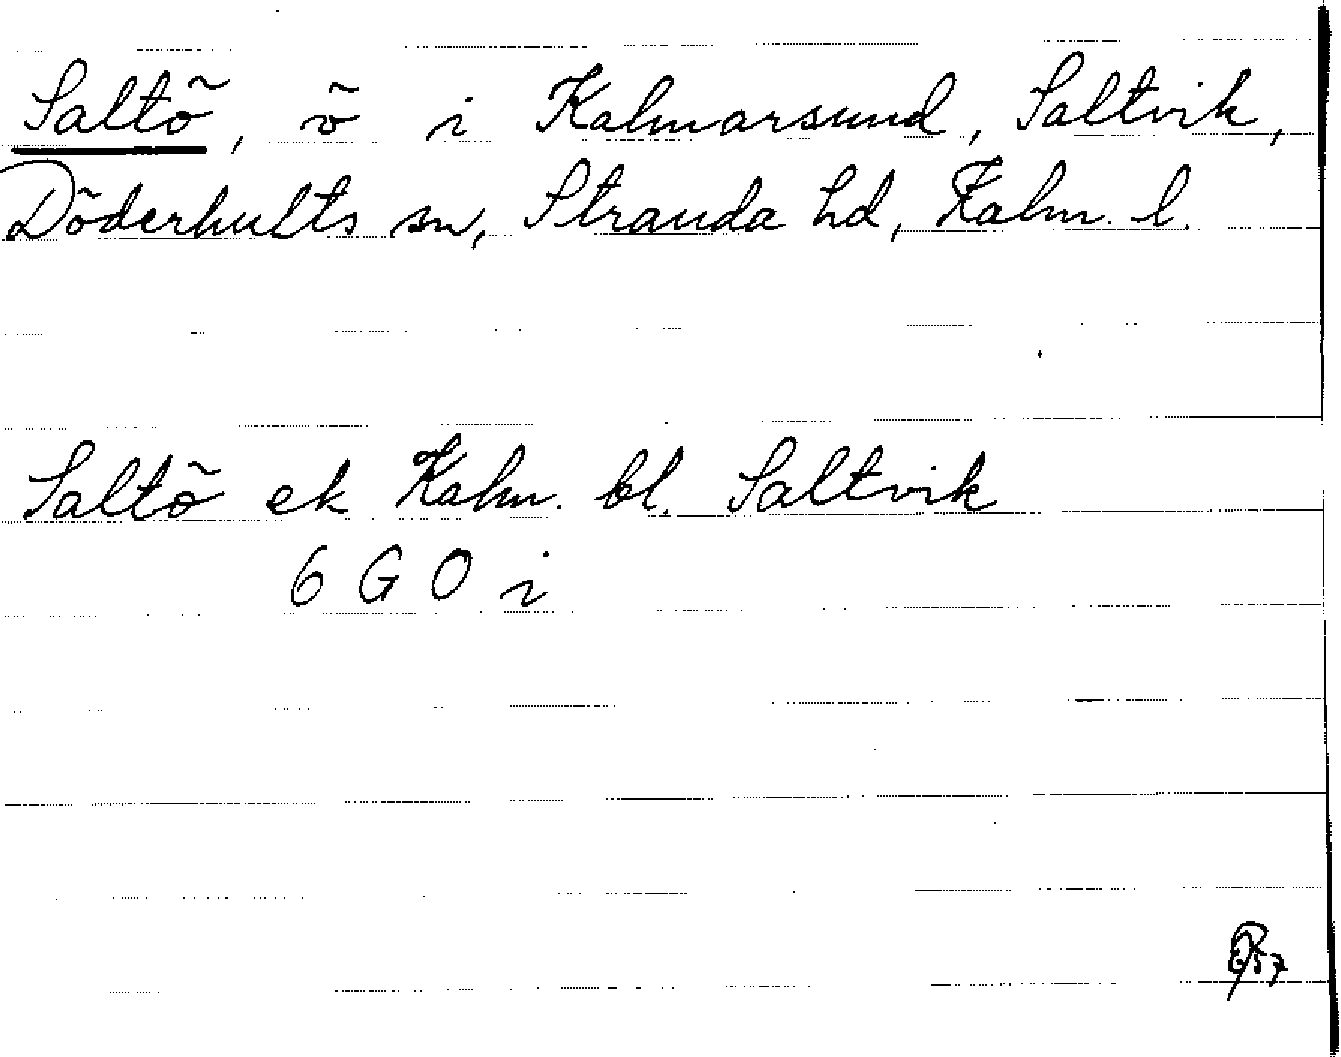 Saltö, ö i Kalmarsund, Saltvik,
Döderhults sn, Stranda hd, Kalm. l.
Saltö ek Kalm. bl. Saltvik
6 G O i